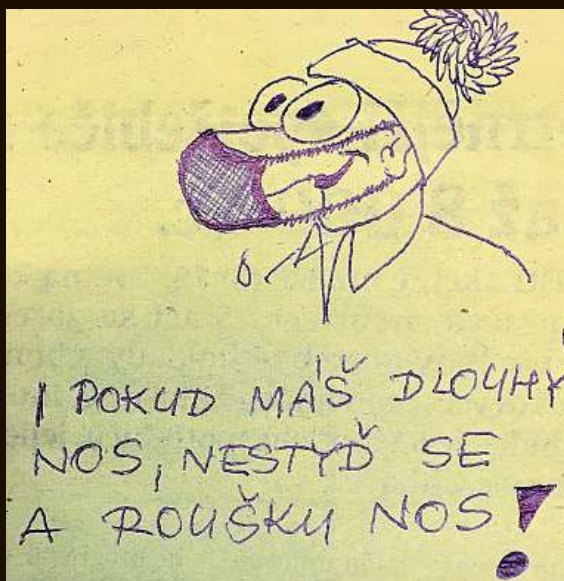 I POKUD MÁŠ DLOUHÝ
NOS, NESTYĎ SE
A ROUŠKU NOS!